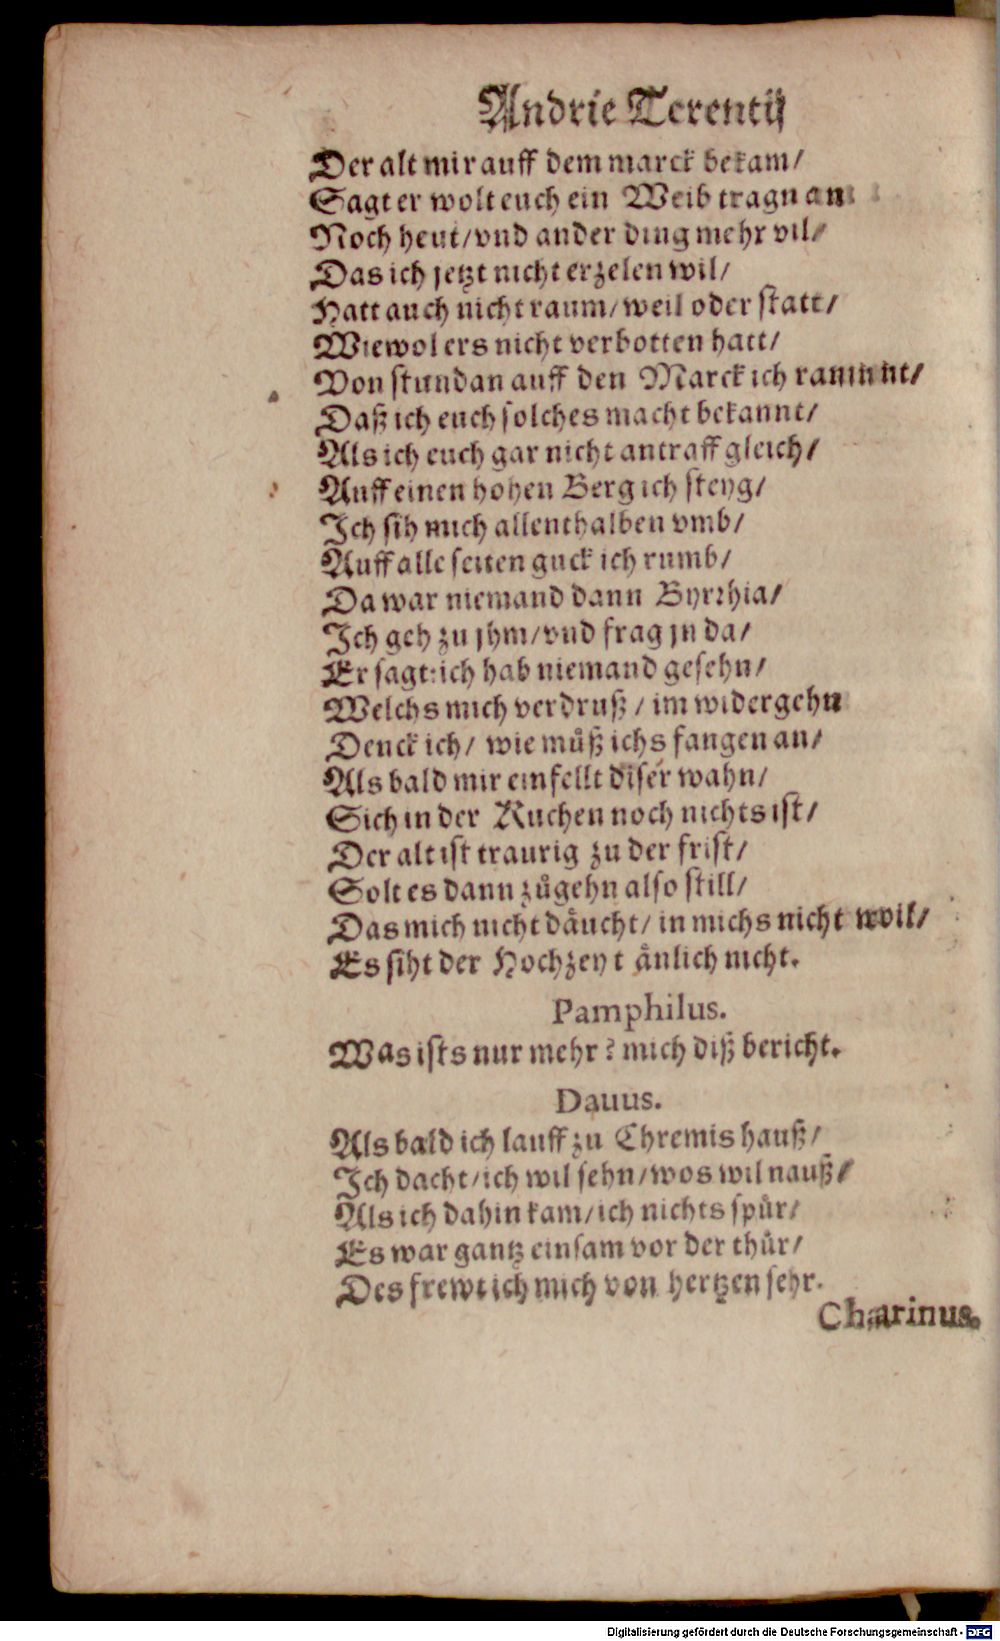 Andrie Terentij
Der alt mir auff dem marck bekam/
Sagt er wolt euch ein Weib tragn an
Noch heut/ vnd ander ding mehr vil/
Das ich jetzt nicht erzelen wil/
Hatt auch nicht raum/ weil oder statt/
Wiewol ers nicht verbotten hatt/
Von stund an auff den Marck ich rannt/
Daß ich euch solches macht bekannt/
Als ich euch gar nicht antraff gleich/
Auff einen hohen Berg ich steyg/
Ich sih mich allenthalben vmb/
Auff alle seiten guck ich rumb/
Da war niemand dann Byrrhia/
Ich geh zu jhm/ vnd frag jn da/
Er sagt: ich hab niemand gesehn/
Welchs mich verdruß/ im widergehn
Denck ich/ wie muͤß ichs fangen an/
Als bald mir einfellt diser wahn/
Sich in der Kuchen noch nichts ist/
Der alt ist traurig zu der frist/
Solt es dann zůgehn also still/
Das mich nicht daͤucht/ in michs nicht wil/
Es siht der Hochzeyt aͤnlich nicht.
Pamphilus.
Was ists nur mehr? mich diß bericht.
Dauus.
Als bald ich lauff zu Chremis hauß/
Ich dacht/ ich wil sehn/ wos wil nauß/
Als ich dahin kam/ ich nichts spuͤr/
Es war gantz einsam vor der thuͤr/
Des frewt ich mich von hertzen sehr.
Charinus.
Digitalisierung gefördert durch die Deutsche Forschungsgemeinschaft - DFG